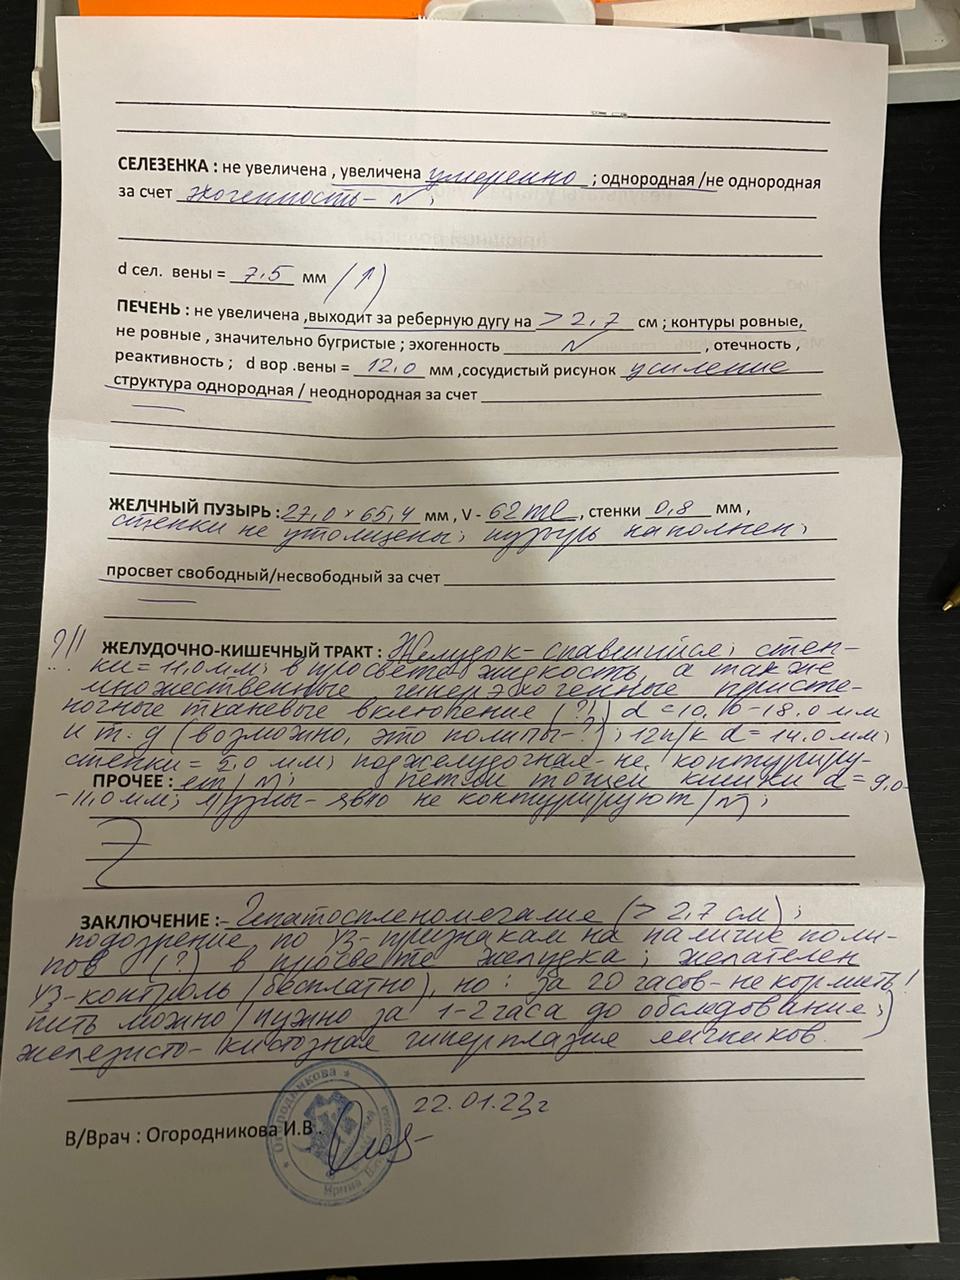 СЕЛЕЗЕНКА : не увеличена , увеличена умеренно ; однородная /не однородная
за счет эхогенность - N ;
d сел. вены = 7,5 мм (↑)
ПЕЧЕНЬ : не увеличена ,выходит за реберную дугу на > 2,7 см ; контуры ровные,
не ровные , значительно бугристые ; эхогенность N , отечность ,
реактивность ; d вор .вены = 12,0 мм ,сосудистый рисунок усиление
структура однородная / неоднородная за счет
ЖЕЛЧНЫЙ ПУЗЫРЬ : 27,0 × 65,4 мм , V - 62 ml , стенки 0,8 мм ,
стенки не утолщены; пузырь наполнен;
просвет свободный/несвободный за счет
?!! ЖЕЛУДОЧНО-КИШЕЧНЫЙ ТРАКТ : Желудок - спавшийся; стен-
ки = 11,0 мм; в просвете жидкость, а также
множественные гиперэхогенные присте-
ночные тканевые включение (?) d = 10,10 - 18,0 мм
и т. д (возможно, это полипы - ?); 12п/к d = 14,0 мм;
стенки = 5,0 мм; поджелудочная - не контуриру-
ПРОЧЕЕ : ет /N/; петли тощей кишки d = 9,0-
-11,0 мм; л/узлы - явно не контурируют /N/;
ЗАКЛЮЧЕНИЕ :- Гепатоспленомегалие (> 2,7 см);
подозрение по УЗ-признакам на наличие поли-
пов (?) в просвете желудка; желателен
УЗ-контроль /бесплатно/, но: за 20 часов - не кормить!
пить можно /нужно за 1-2 часа до обследование;)
железисто-кистозная гиперплазие яичников.
22.01.22г
В/Врач : Огородникова И.В.
Огородникова